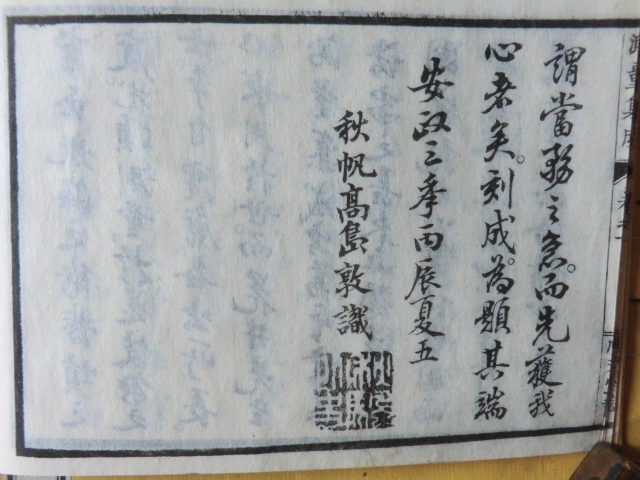 謂當務之急。而先獲我
心者矣。刻成。為題其端
安政三年丙辰夏五
秋帆高島敦識